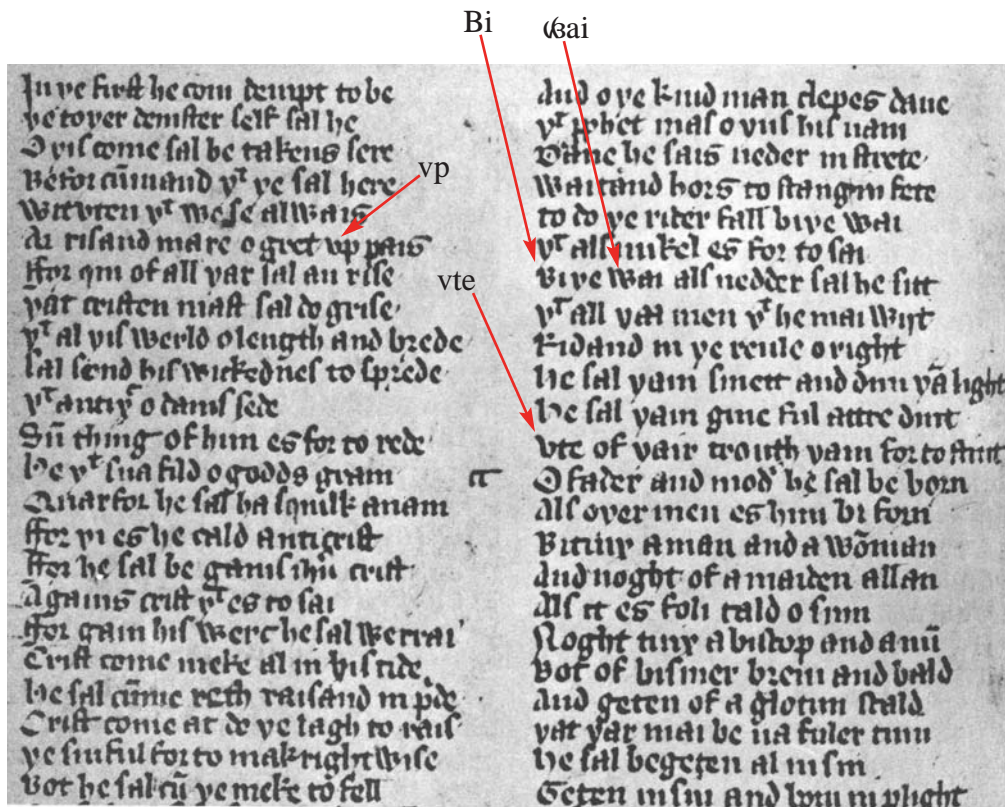 Bi
ꟃai
vp
vte
In ye first he com dempt to be
ye toyer demster self sal he
O yis come sal be takens sere
Befor cūmand yᵗ ye sal here
Witvten yᵗ we se alwais
Ai risand mare o gret vp pais
ffor qm of all yar sal an rise
yat cristen mast sal do grise
yᵗ al yis werld o length and brede
sal send his wickednes to sprede
yᵗ antix̄ o danis sede
Sū thing of him es for to rede
He yᵗ sua fild o godds gram
Quarfor he sal ha squilk a nam
ffor yi es he cald anticrist
ffor he sal be gains ihū crist
Agains crist yᵗ es to sai
ffor gain his werc he sal werrai
Crist come meke al in his tide
he sal cūme reth raisand in pͥde
Crist come at do ye lagh to rais
ye sinful for to mak right wise
Bot he sal cū ye meke to fell
And o ye kind man clepes dane
yᵗ ꝓhet mas o yus his nam
Dane he sais neder in strete
Waitand hors to stangin fete
to do ye rider fall bi ye wai
yᵗ als mikel es for to sai
Bi ye wai als nedder sal he sitt
yᵗ all yai men yᵗ he mai witt
Ridand in ye reule o right
he sal yaim smett and dun yā light
he sal yaim giue ful attre dint
vte of yair trouth yaim for to stint
O fader and modͬ he sal be born
Als oyer men es him bi forn
Bituix a man and a wōman
And noght of a maiden allan
Als it es foli tald o sum
Noght tuix a biscop and a nū
Bot of bismer brem and bald
And geten of a glotun scald
yat yar mai be na fuler tun
he sal be geten al in sin
Geten in sin and born in plight